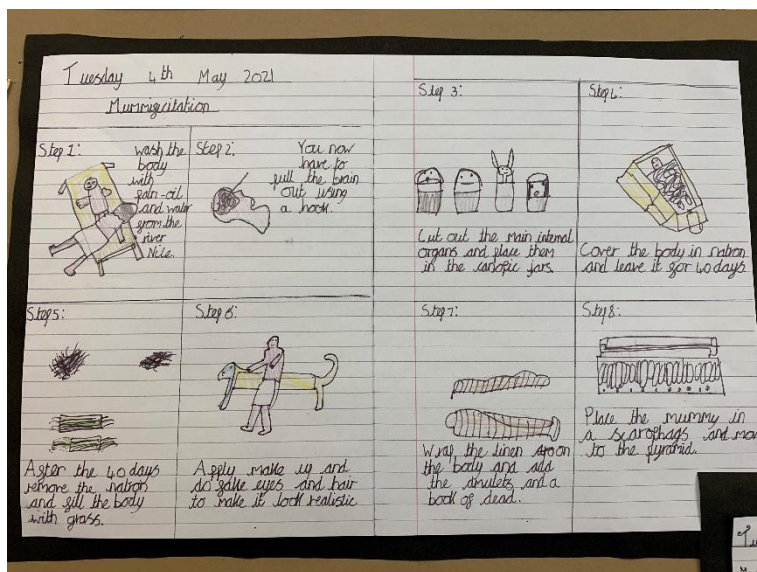 Tuesday 4th May 2021
Mummigicitation
Step 1:
wash the
body
with
palm-oil
and water
from the
river
Nile.
Step 2:
You now
have to
pull the brain
out using
a hook.
Step 3:
Cut out the main internal
organs and place them
in the canopic jars.
Step 4:
Cover the body in natron
and leave it for 40 days
Step 5:
After the 40 days
remove the natron
and fill the body
with grass.
Step 6:
Apply make up and
do fake eyes and hair
to make it look realistic
Step 7:
Wrap the linen on
the body and add
the amulets and a
book of dead.
Step 8:
Place the mummy in
a scarophags and
to the pyramid.